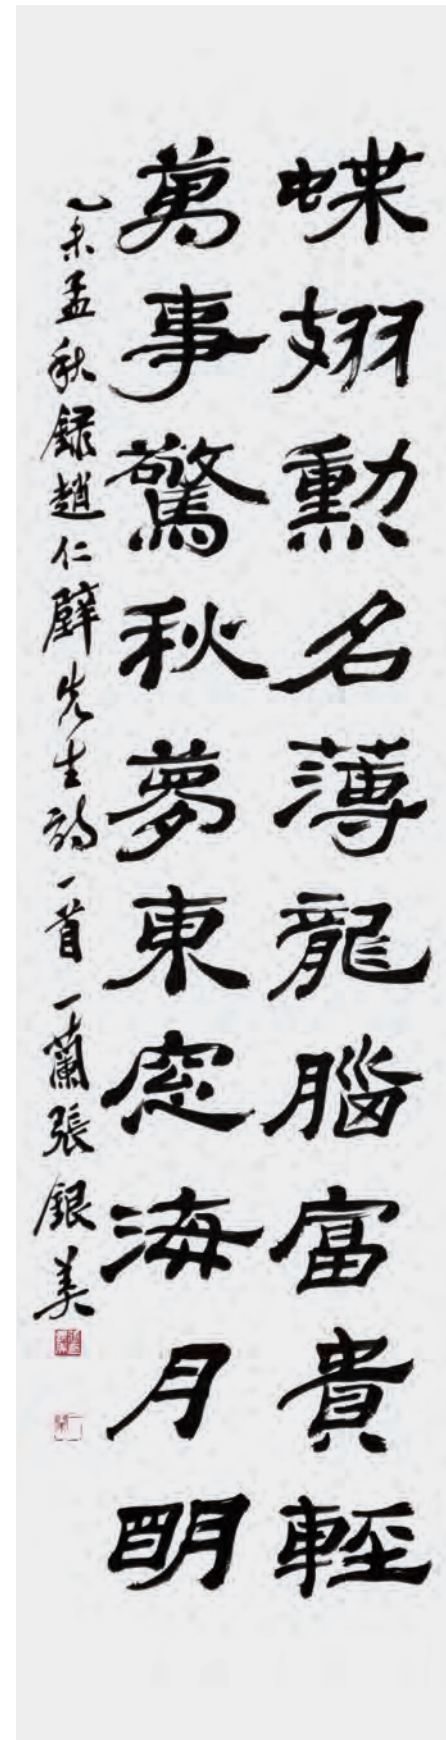 蝶翅勲名薄龍腦富貴輕
萬事驚秋夢東窓海月明
乙未孟秋錄趙仁璧先生詩一首一蘭張銀美